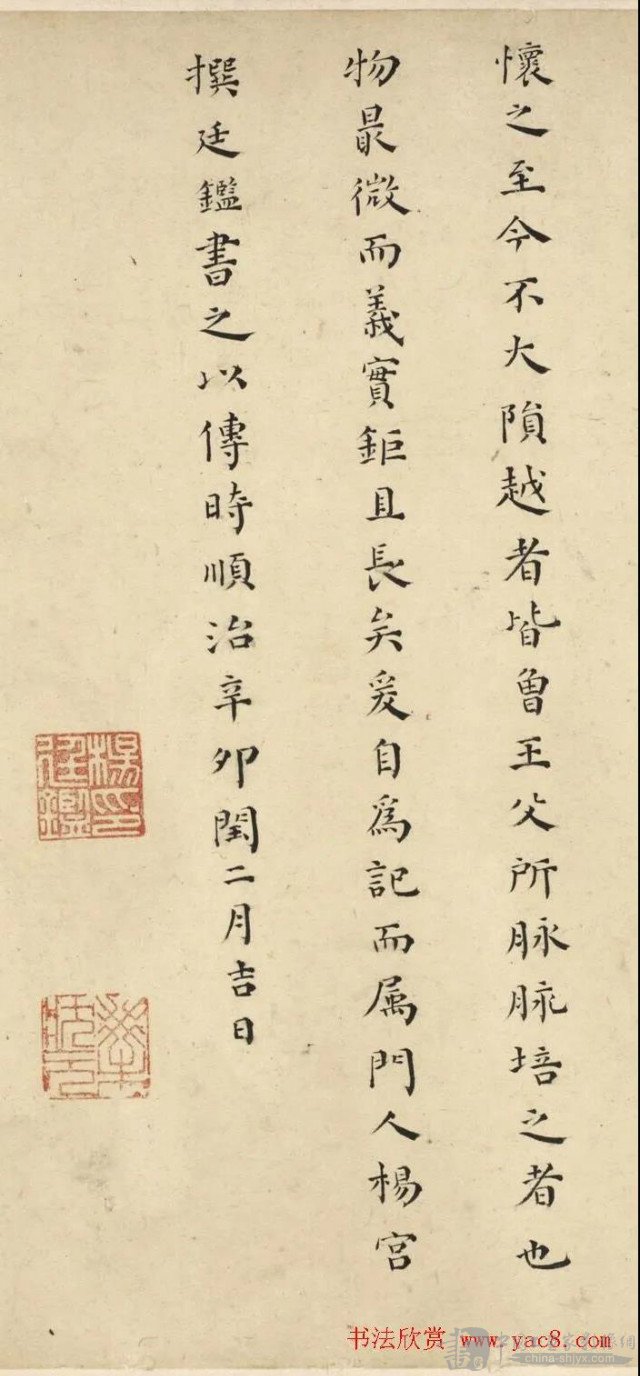 懷之至今不大隕越者皆曾王父所脉脉培之者也
物最微而義實鉅且長矣爰自為記而属門人楊宮
撰廷鑑書之以傳時順治辛卯閏二月吉日
楊印廷鑑
书法欣赏 www.yac8.com
china-shjyx.com